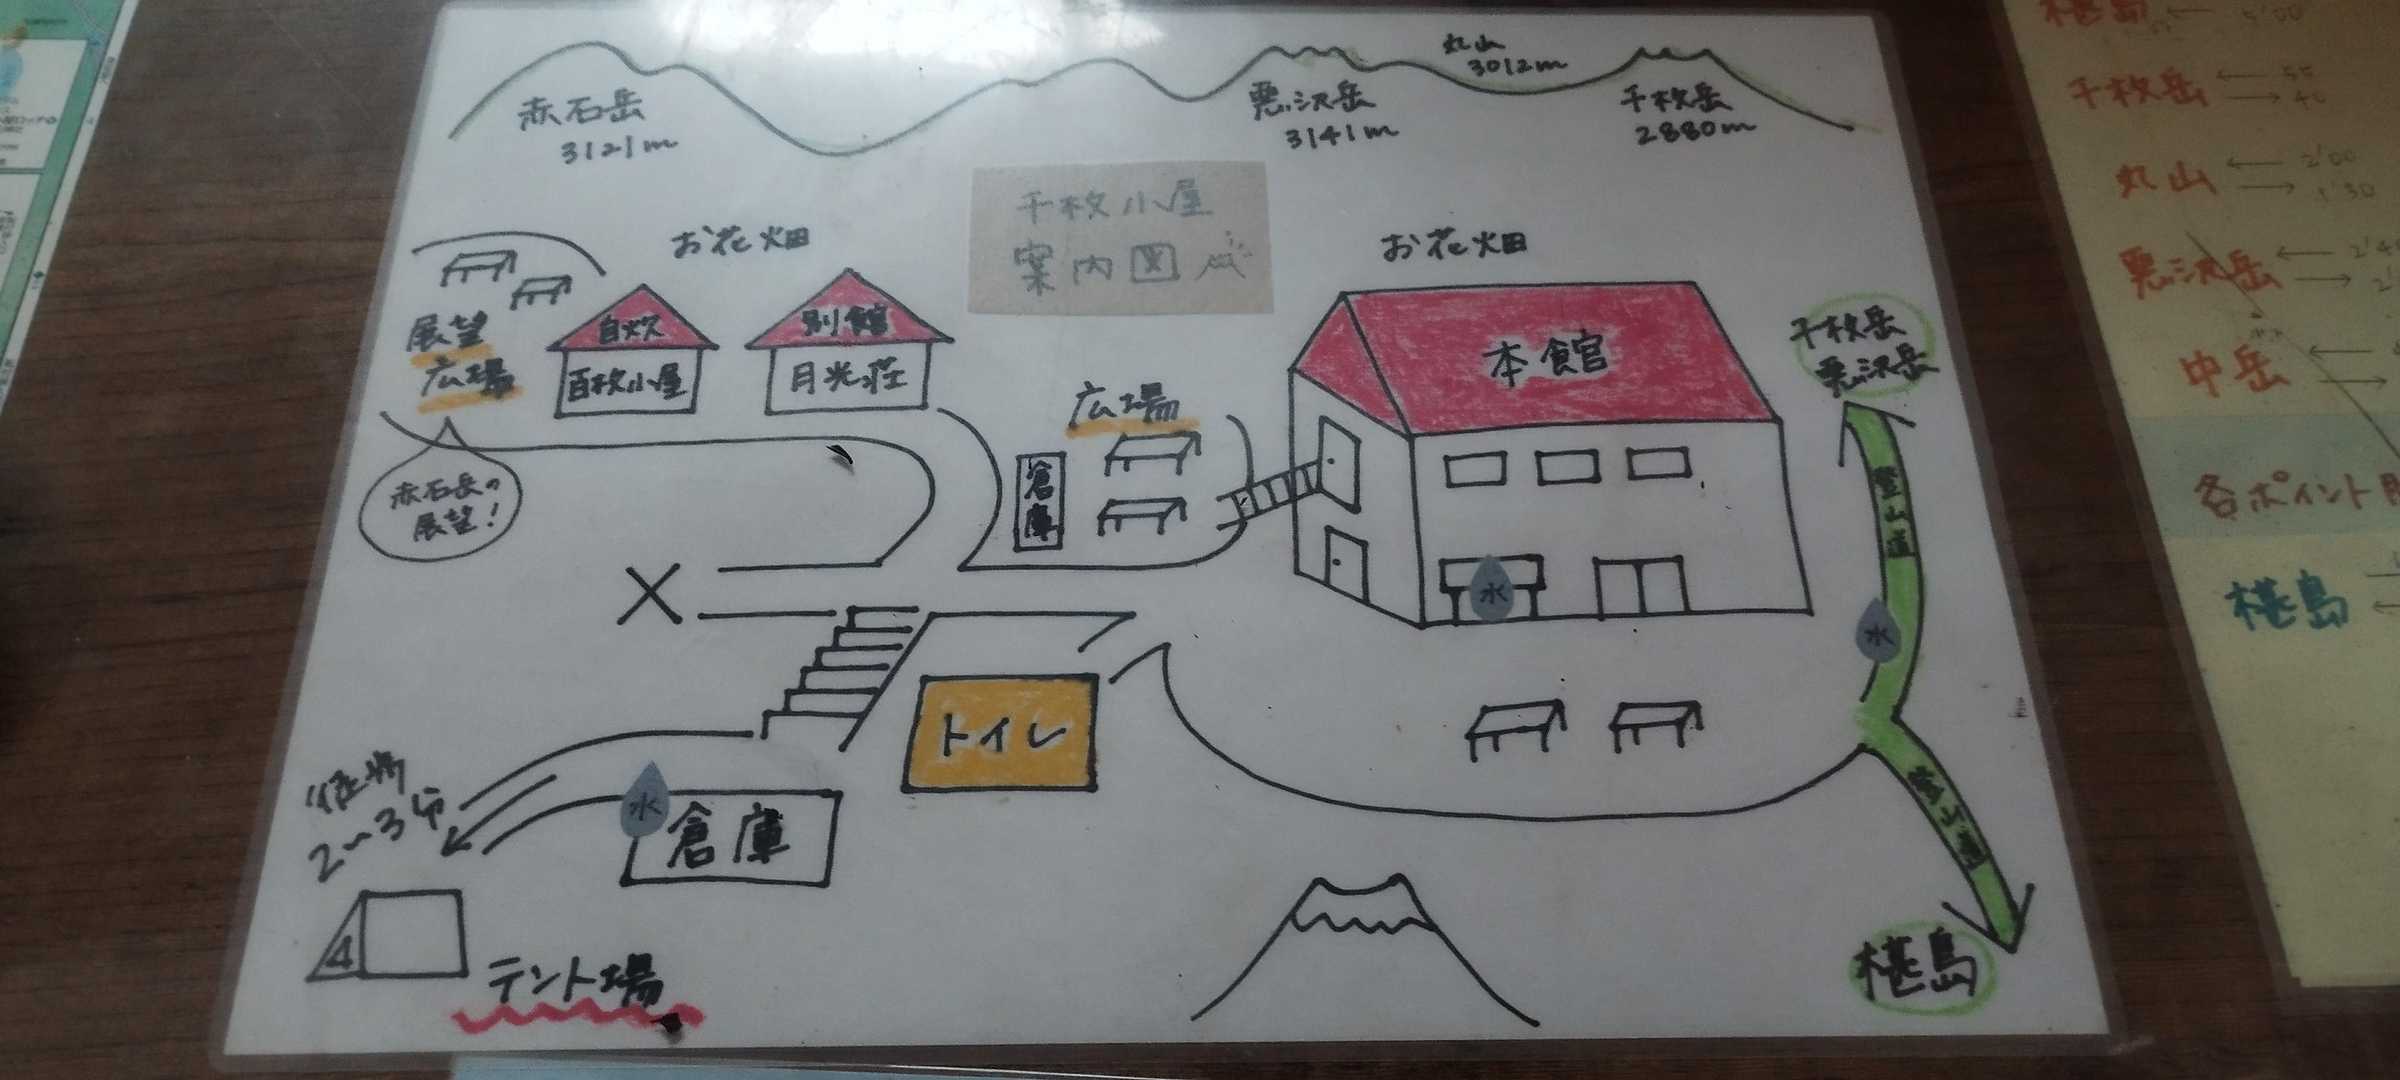 赤石岳
3121m
悪沢岳
3141m
丸山
3012m
千枚岳
2880m
千枚小屋
案内図
お花畑
お花畑
展望
広場
自炊
百枚小屋
別館
月光荘
広場
倉庫
本館
千枚岳
悪沢岳
登山道
赤石岳の
展望!
水
水
トイレ
往場
2~3分
水
倉庫
テント場
登山道
椹島
椹島 ← 5'00
千枚岳
丸山 ← 2'00
→ 1'30
悪沢岳
中岳
各ポイント
椹島